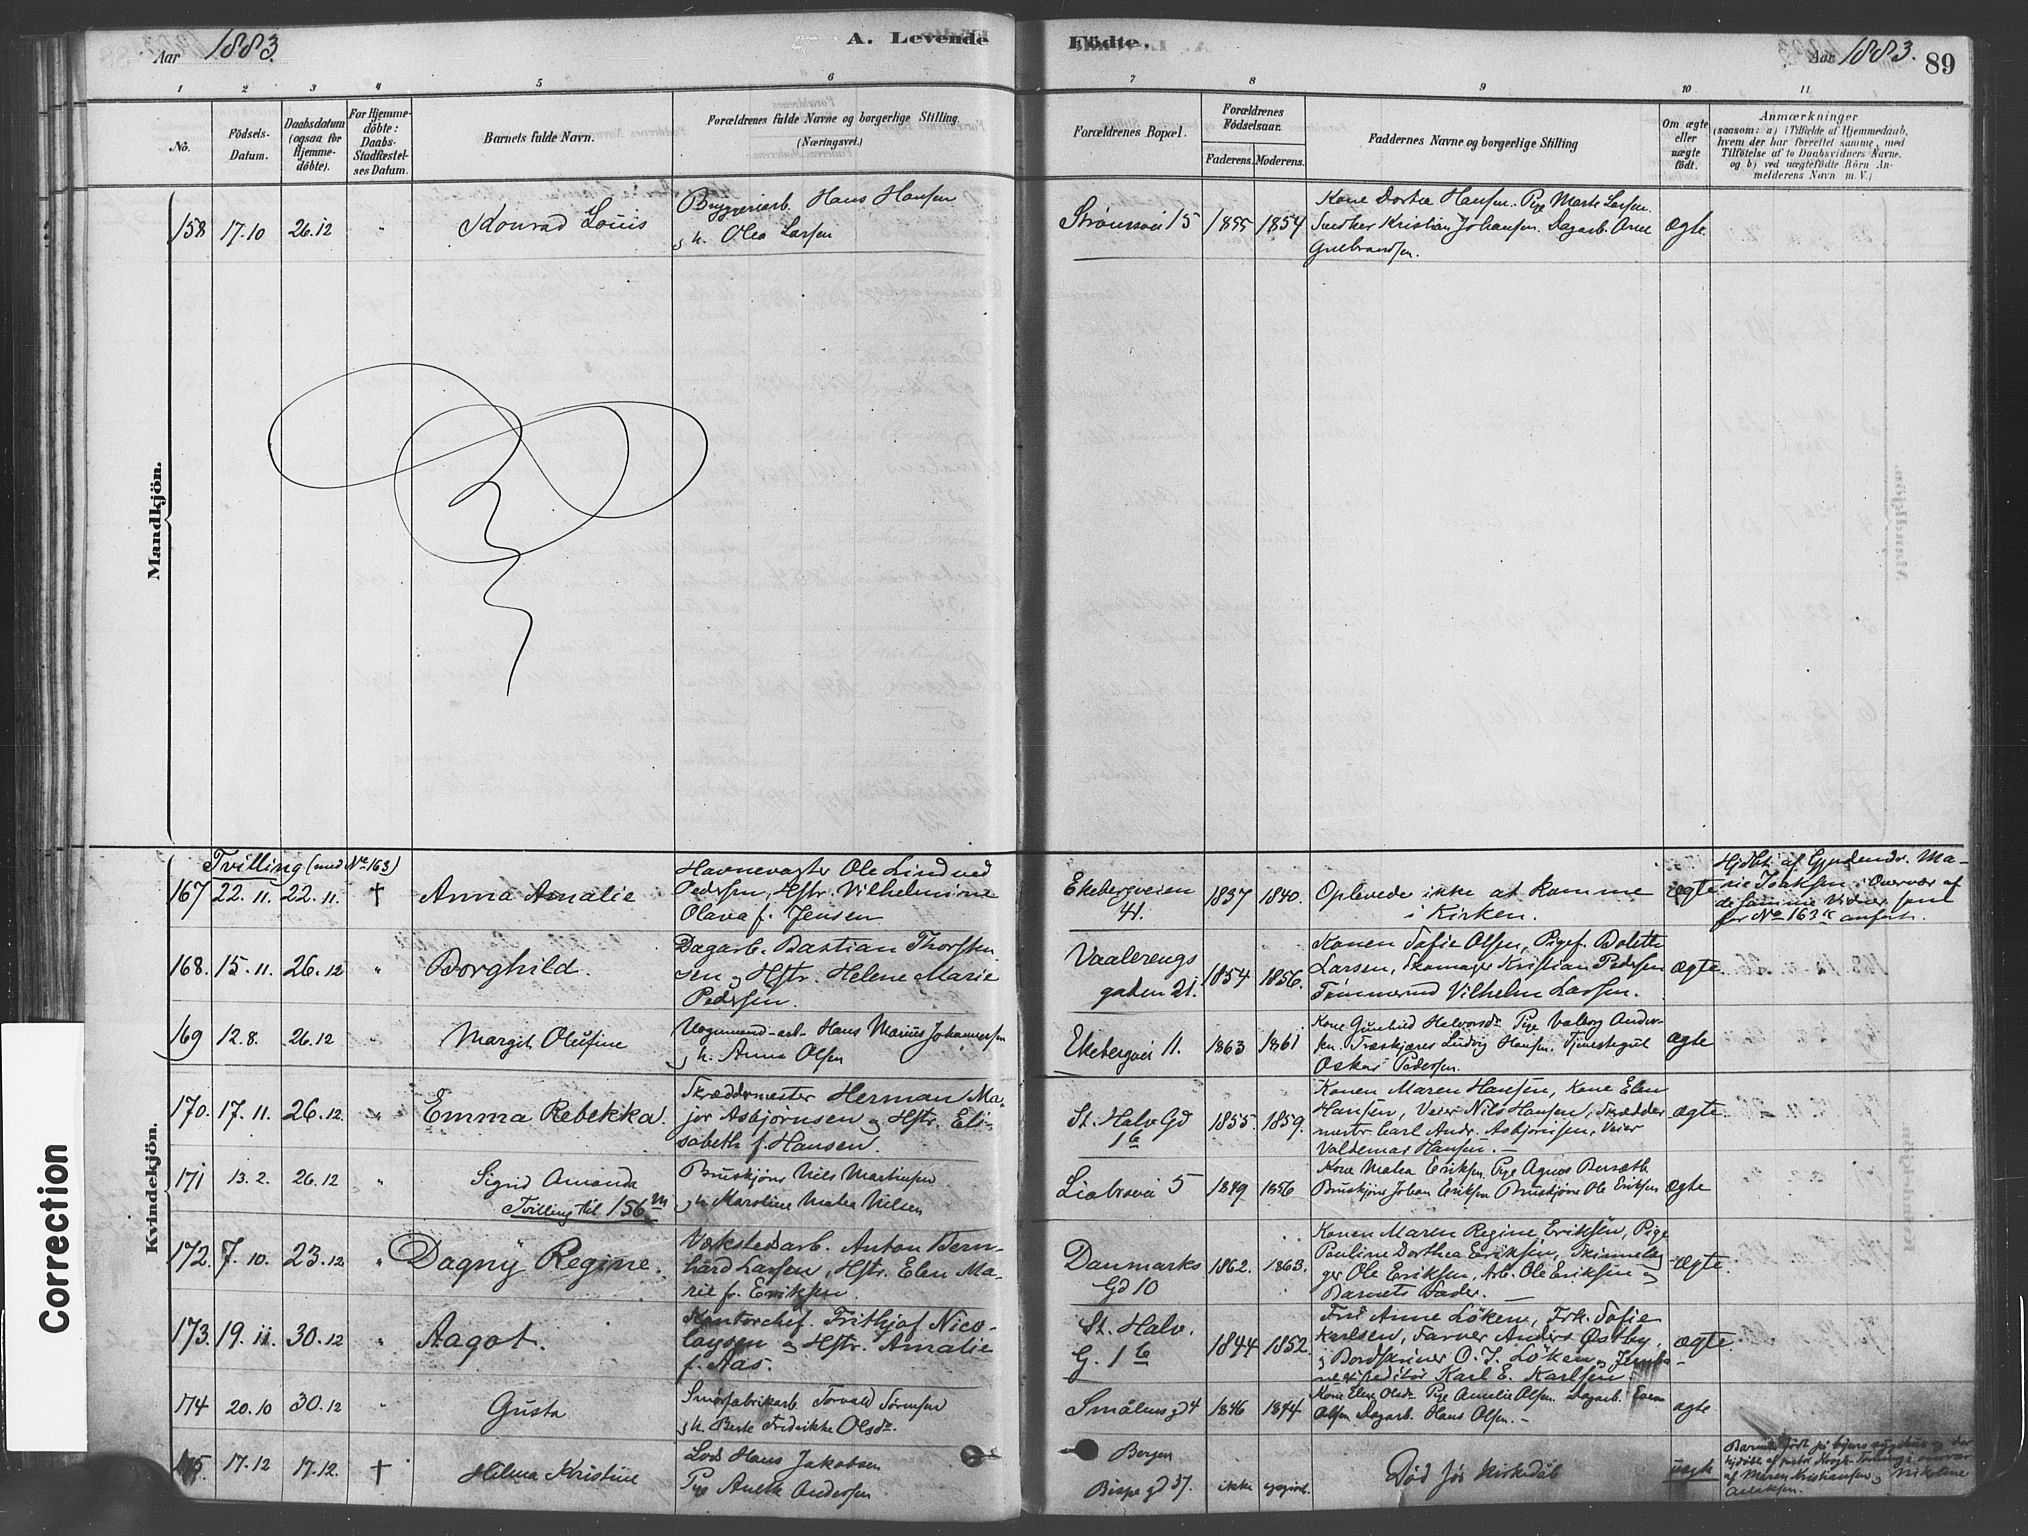 Aar 1883.
A. Levende
Födte.
Aar 1883.
89
1 2 3 4 5 6 7 8 9 10 11
No.
Födsels-
Datum.
Daabsdatum
(ogsaa for
Hjemme-
döbte).
For Hjemme-
döbte:
Daabs-
Stadfæstel-
ses Datum.
Barnets fulde Navn.
Forældrenes fulde Navne og borgerlige Stilling.
(Næringsvei.)
Forældrenes Bopæl.
Forældrenes
Födselsaar.
Faderens. Moderens.
Faddernes Navne og borgerlige Stilling
Om ægte
eller
uægte
födt.
Anmærkninger
(saasom: a) i Tilfælde af Hjemmedaab,
hvem der har forrettet samme, med
Tilföielse af to Daabsvidners Navne.
og b) ved uægtefödte Börn An-
melderens Navn m. V.)
Mandkjön.
158 17.10 26.12 " Konrad Louis
Bryggeriarb. Hans Hansen
og h. Olea Larsen
Strömsvei 15 1855 1854
Kone Dortea Hansen. Pige Marte Larsen.
Snedker Kristian Johansen. Dagarb. Arne
Gulbrandsen.
ægte
Kvindekjön.
Tvilling (med No 163)
167 22.11. 22.11. † Anna Amalie
Havnevogter Ole Lindved
Pedersen, Hstr. Vilhelmine
Olava f. Jensen
Ekebergveien
41.
1837 1840.
Oplevede ikke at komme
i Kirken.
ægte
Hjdbt. af Gjordemdr. Ma-
rie Isaksen. Overvær af
de samme Vidner som
for No 163 anført.
168. 15.11. 26.12 " Borghild.
Dagarb. Bastian Thorsten-
sen og Hstr. Helene Marie
Pedersen.
Vaalerengs
gaden 21.
1854 1856.
Konen Sofie Olsen, Pigef. Bolette
Larsen, Skomager Kristian Pedersen
Tømmermd Vilhelm Larsen.
ægte.
169 12.8. 26.12 " Margit Olufine
Vognmand-arb. Hans Marius Johannessen
og h. Anna Olsen
Ekebergvei 11. 1863 1861
Kone Gunhild Halvorsdr Pige Valborg Ander-
sen. Træskjærer Ludvig Hansen. Tjenestegut
Oskar Pedersen.
ægte
170. 17.11. 26.12. " Emma Rebekka.
Skræddermester Herman Ma-
jor Asbjørnsen og Hstr. Eli-
sabeth f. Hansen.
St. Halv Gd
1b
1855. 1859.
Konen Maren Hansen, Kone Elen
Hansen, Veier Nils Hansen, Skrædder
mester Carl Andr. Asbjørnsen, Veier
Valdemar Hansen.
ægte.
171 13.2. 26.12 " Sigrid Amanda
Tvilling til 156 m
Bruskjører Nils Martinsen
og h. Karoline Matea Nilsen
Liabrovei 5 1849 1856
Kone Matea Eriksen Pige Agnes
Bruskjører Johan Eriksen Bruskjører Ole Eriksen
ægte
172. 7.10. 23.12 " Dagny Regine.
Værkstedarb. Anton Bern-
hard Larsen, Hstr. Elen Ma-
rie f. Eriksen.
Danmarks
Gd 10
1862. 1863.
Konen Maren Regine Eriksen, Pige
Pauline Dorthea Eriksen,
ger Ole Eriksen, Arb. Ole Eriksen og
Barnets Fader.
ægte.
173. 19.11. 30.12 " Aagot.
Kontorchef. Frithjof Nico-
laysen og Hstr. Amalie
f. Aas.
St. Halv.
G. 1b
1844 1852.
Fru Anne Löken, Frk. Sofie
Karlsen, Farver Anders Østby,
O. J. Löken, Jernba-
Karl E. Karlsen.
ægte.
174 20.10 30.12 " Gusta
Smørfabrikarb. Torvald Sörensen
og h. Berte Fredrikke Olsdr.
Smålens gd 4 1846 1844
Kone Elise Olsdr. Pige Amelie Olsen. Dagarb. Even
Olsen Dagarb. Hans Olsen.
ægte
175. 17.12 17.12. † Hilma Kristine
Lods Hans Jakobsen
Pige Anette Andersen
Bergen
Bispe gd 37.
ikke opgivet.
Död før Kirkedåb
uægte
af Maren Kristiansen og Nikoline
Correction